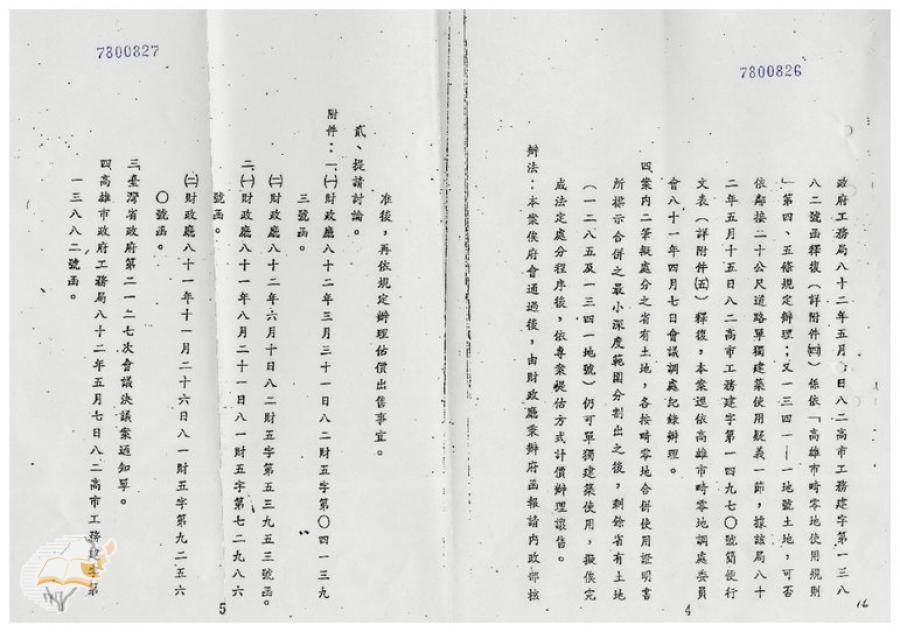 7800826
政府工務局八十二年五月七日八二高市工務建字第一三八
八二號函釋復（詳附件㈣）係依「高雄市畸零地使用規則
」第四、五條規定辦理；又一三四一—一地號土地，可否
依鄰接二十公尺道路單獨建築使用疑義一節，據該局八十
二年五月十五日八二高市工務建字第一四九七〇號簡便行
文表（詳附件㈤）釋復，本案還依高雄市畸零地調處委員
會八十一年四月七日會議調處紀錄辦理。
四案內二筆擬處分之省有土地，各按畸零地合併使用證明書
所標示合併之最小深度範圍分割出之後，剩餘省有土地
（一二八五及一三四一地號）仍可單獨建築使用，擬俟完
成法定處分程序後，依專案提估方式計價辦理讓售。
辦法：本案俟府會通過後，由財政廳秉辦府函報請內政部核
4
16
7800827
准後，再依規定辦理估價出售事宜。
貳、提請討論。
附件：一、㈠財政廳八十二年三月三十一日八二財五字第〇四一三九
三號函。
㈡財政廳八十二年六月十日八二財五字第五三九五三號函。
二、㈠財政廳八十一年八月二十一日八一財五字第七二九八六
號函。
㈡財政廳八十一年十一月二十六日八一財五字第九二五六
〇號函。
三、臺灣省政府第二一二七次會議決議案通知單。
四、高雄市政府工務局八十二年五月七日八二高市工務建字第
一三八八二號函。
5